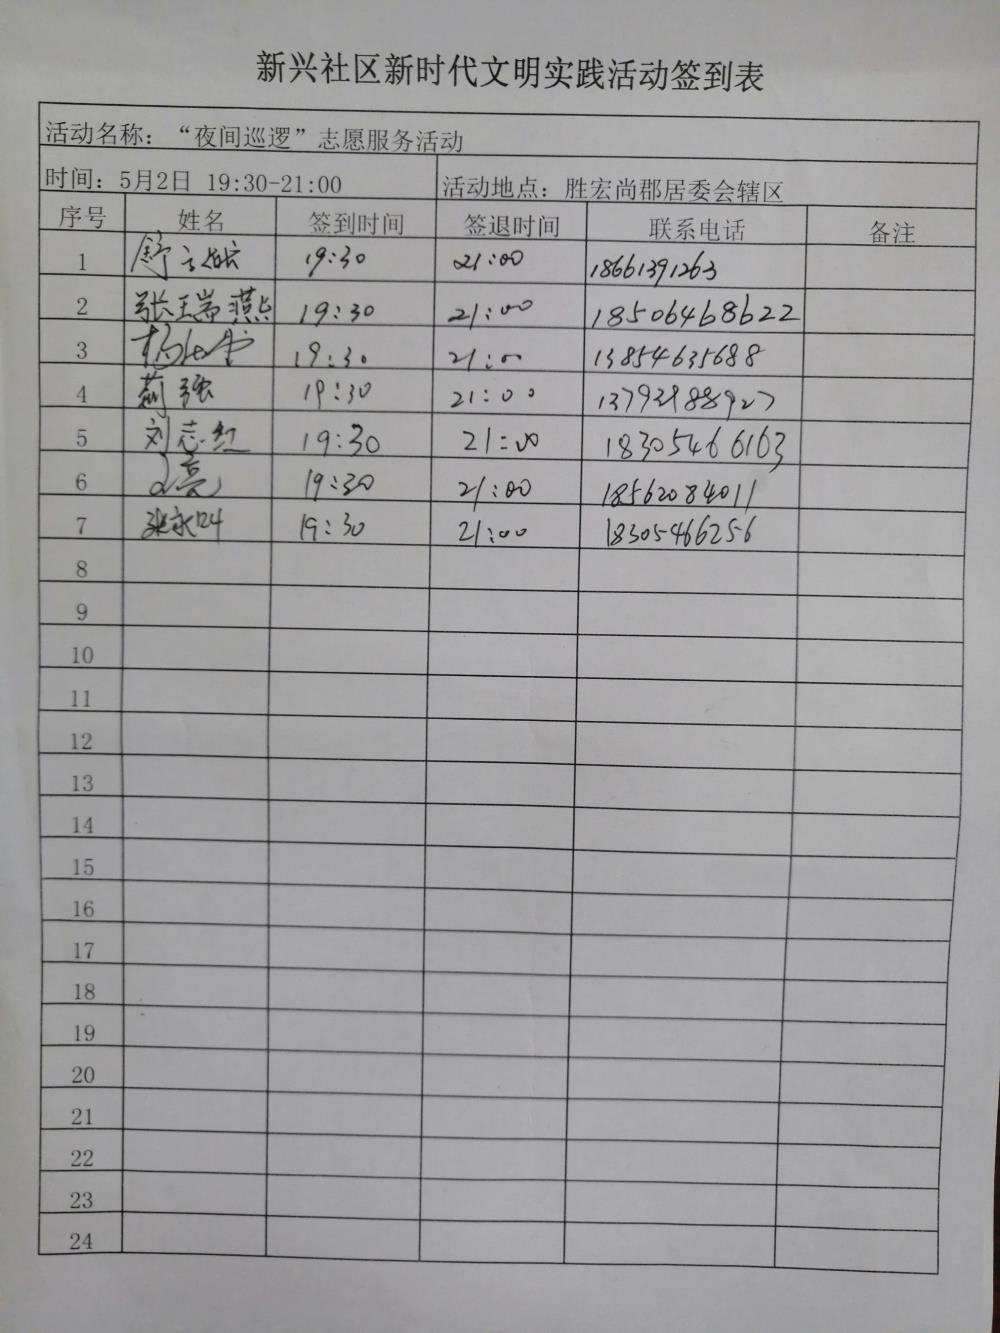 新兴社区新时代文明实践活动签到表
活动名称：“夜间巡逻”志愿服务活动
时间：5月2日 19:30-21:00 活动地点：胜宏尚郡居委会辖区
序号 姓名 签到时间 签退时间 联系电话 备注
1 19:30 21:00 18661391263
2 张瑞燕 19:30 21:00 18506468622
3 19:30 21:00 13854635688
4 强 19:30 21:00 13793988927
5 刘志红 19:30 21:00 18305466163
6 亮 19:30 21:00 18562084011
7 张永 19:30 21:00 18305466256
8
9
10
11
12
13
14
15
16
17
18
19
20
21
22
23
24